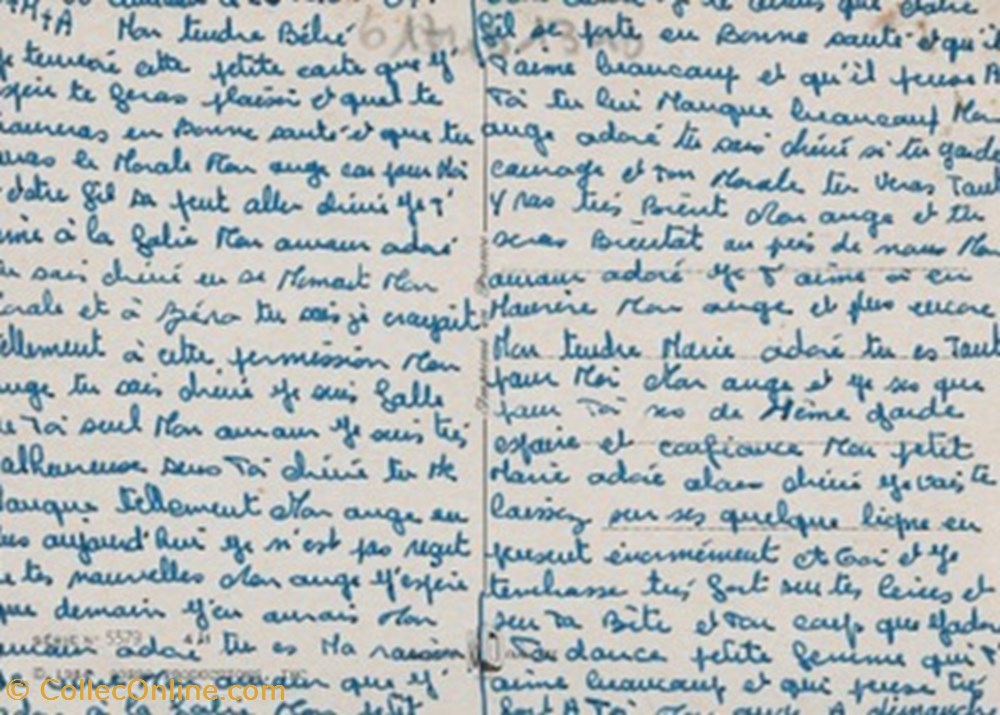 Mon tendre Bébé
cette petite carte que j'
te feras plaisir et que te
en Bonne santé et que tu
le Morale Mon ange car pour Moi
Votre fil sa peut aller chérie Je t'
à la folie Mon amour adoré
sais chérie en se Moment Mon
et à Zéro tu sais je crayait
à cette permission Mon
ange tu sais chérie Je suis folle
Toi seul Mon amour Je suis très
sens Toi chérie tu Me
tellement Mon ange en
aujourd'hui Je n'est pas reçut
tes nouvelles Mon ange J'espère
que demain J'en aurais Mon
adoré tu es Ma raison
SÉRIE N° 5579
que J'
à la Mon petit
que Votre
fil se porte en Bonne santé et qu'il
T'aime beaucoup et qu'il pense A
Toi tu lui Manque beaucoup Mon
ange adoré tu sais chérie si tu garde
courage et ton Morale tu veras Tout
Mon ange et tu
seras Bientat au près de nous Mon
amour adoré Je T'aime a en
Mourire Mon ange et plus encore
Mon tendre Marie adoré tu es Tout
pour Moi Mon ange et Je ses que
pour Toi ses de Même garde
espoire et confiance Mon petit
Marie adoré alors chérie Je vais te
laissez sur ses quelque ligne en
pensent énormément A Toi et Je
t'embrasse très fort sur tes lèvres et
sur ta Bite et ton corp que J'adore
Ta petite femme qui T'
aime beaucoup et qui pense très
fort A Toi
© CollecOnline.com